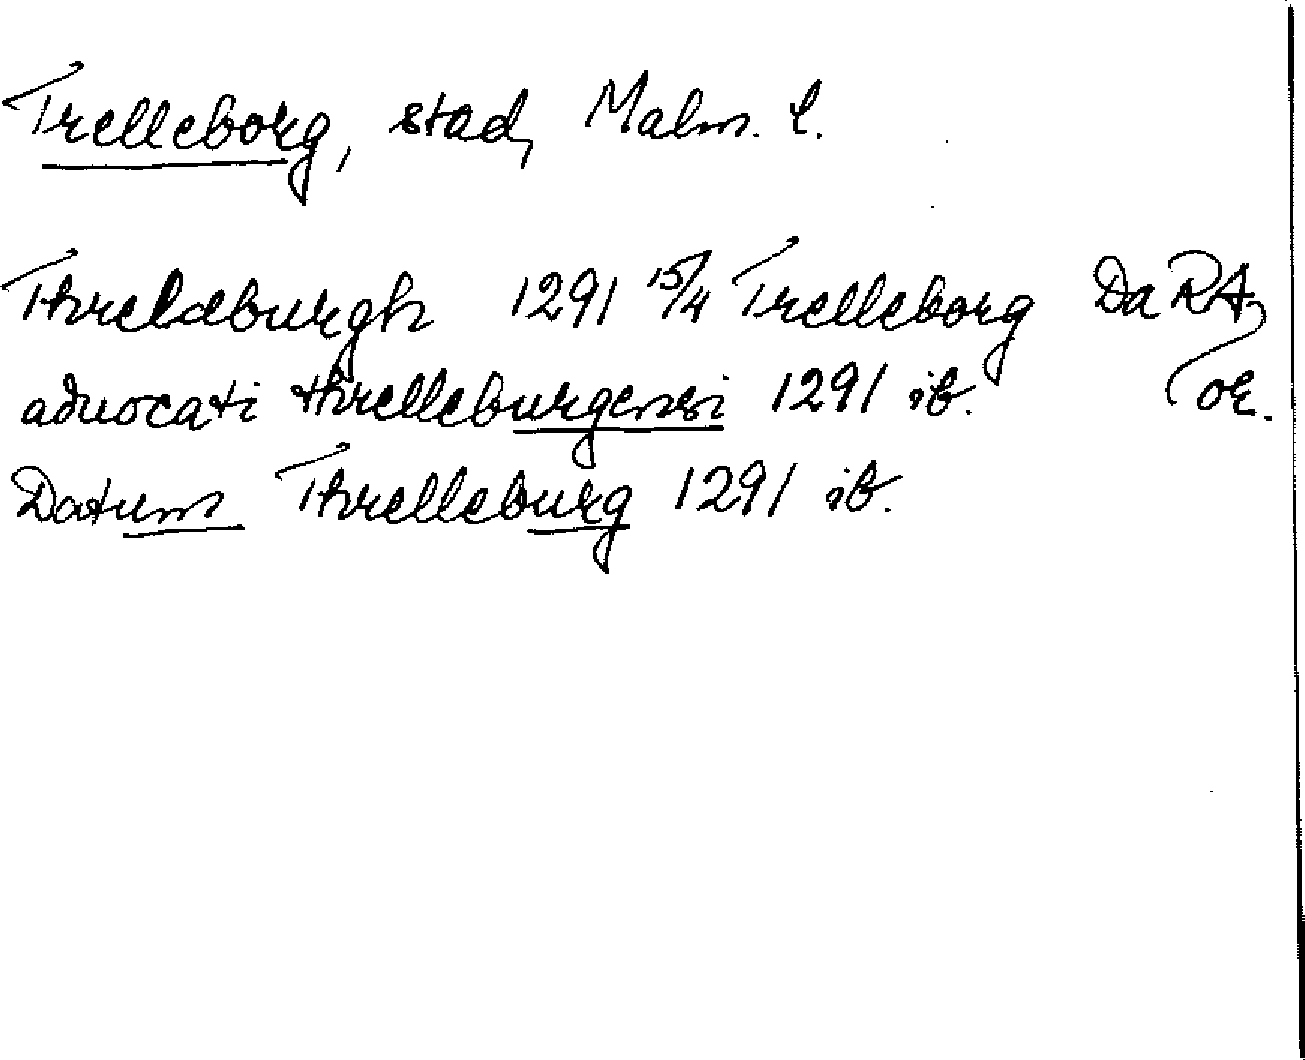 Trelleborg, stad, Malm. l.
Threldeburgh 1291 15/4 Trelleborg DaRA,
advocati threlleburgensi 1291 ib. or.
Datum Threlleburg 1291 ib.